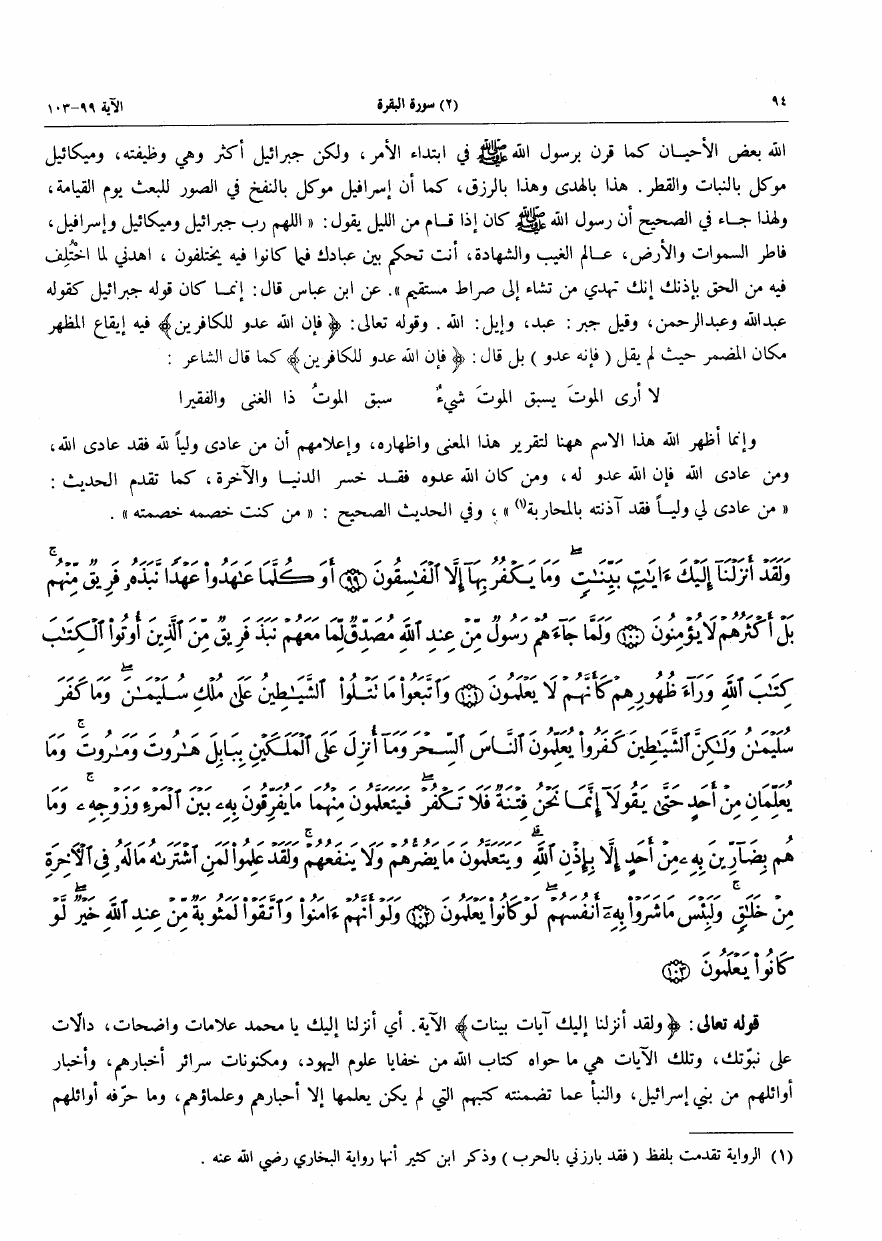 ٩٤ (٢) سورة البقرة الآية ٩٩-١٠٣
الله بعض الأحيـان كما قرن برسول الله ﷺ في ابتداء الأمر، ولكن جبرائيل أكثر وهي وظيفته، وميكائيل
موكل بالنبات والقطر. هذا بالهدى وهذا بالرزق، كما أن إسرافيل موكل بالنفخ في الصور للبعث يوم القيامة،
ولهذا جـاء في الصحيح أن رسول الله ﷺ كان إذا قـام من الليل يقول: « اللهم رب جبرائيل وميكائيل وإسرافيل،
فاطر السموات والأرض، عـالم الغيب والشهادة، أنت تحكم بين عبادك فيما كانوا فيه يختلفون ، اهدني لما اختُلِف
فيه من الحق بإذنك إنك تهدي من تشاء إلى صراط مستقيم ». عن ابن عباس قال: إنمـا كان قوله جبرائيل كقوله
عبدالله وعبدالرحمن، وقيل جبر: عبد، وإيل: الله . وقوله تعالى: ﴿ فإن الله عدو للكافرين﴾ فيه إيقاع المظهر
مكان المضمر حيث لم يقل ( فإنه عدو ) بل قال: ﴿ فإن الله عدو للكافرين﴾ كما قال الشاعر :
لا أرى الموتَ يسبق الموتَ شيءٌ سبق الموتُ ذا الغنى والفقيرا
وإنما أظهر الله هذا الاسم ههنا لتقرير هذا المعنى واظهاره، وإعلامهم أن من عادى ولياً لله فقد عادى الله،
ومن عادى الله فإن الله عدو له، ومن كان الله عدوه فقـد خسر الدنيـا والآخرة، كما تقدم الحديث :
« من عادى لي وليـاً فقد آذنته بالمحاربة(١) »، وفي الحديث الصحيح : « من كنت خصمه خصمته » .
وَلَقَدْ أَنزَلْنَآ إِلَيْكَ ءَايَٰتٍۭ بَيِّنَٰتٍۖ وَمَا يَكْفُرُ بِهَآ إِلَّا ٱلْفَٰسِقُونَ ۝٩٩ أَوَكُلَّمَا عَٰهَدُوا۟ عَهْدًا نَّبَذَهُۥ فَرِيقٌ مِّنْهُمۚ
بَلْ أَكْثَرُهُمْ لَا يُؤْمِنُونَ ۝١٠٠ وَلَمَّا جَآءَهُمْ رَسُولٌ مِّنْ عِندِ ٱللَّهِ مُصَدِّقٌ لِّمَا مَعَهُمْ نَبَذَ فَرِيقٌ مِّنَ ٱلَّذِينَ أُوتُوا۟ ٱلْكِتَٰبَ
كِتَٰبَ ٱللَّهِ وَرَآءَ ظُهُورِهِمْ كَأَنَّهُمْ لَا يَعْلَمُونَ ۝١٠١ وَٱتَّبَعُوا۟ مَا تَتْلُوا۟ ٱلشَّيَٰطِينُ عَلَىٰ مُلْكِ سُلَيْمَٰنَۖ وَمَا كَفَرَ
سُلَيْمَٰنُ وَلَٰكِنَّ ٱلشَّيَٰطِينَ كَفَرُوا۟ يُعَلِّمُونَ ٱلنَّاسَ ٱلسِّحْرَ وَمَآ أُنزِلَ عَلَى ٱلْمَلَكَيْنِ بِبَابِلَ هَٰرُوتَ وَمَٰرُوتَۚ وَمَا
يُعَلِّمَانِ مِنْ أَحَدٍ حَتَّىٰ يَقُولَآ إِنَّمَا نَحْنُ فِتْنَةٌ فَلَا تَكْفُرْۖ فَيَتَعَلَّمُونَ مِنْهُمَا مَا يُفَرِّقُونَ بِهِۦ بَيْنَ ٱلْمَرْءِ وَزَوْجِهِۦۚ وَمَا
هُم بِضَآرِّينَ بِهِۦ مِنْ أَحَدٍ إِلَّا بِإِذْنِ ٱللَّهِۚ وَيَتَعَلَّمُونَ مَا يَضُرُّهُمْ وَلَا يَنفَعُهُمْۚ وَلَقَدْ عَلِمُوا۟ لَمَنِ ٱشْتَرَىٰهُ مَا لَهُۥ فِى ٱلْءَاخِرَةِ
مِنْ خَلَٰقٍۚ وَلَبِئْسَ مَا شَرَوْا۟ بِهِۦٓ أَنفُسَهُمْۖ لَوْ كَانُوا۟ يَعْلَمُونَ ۝١٠٢ وَلَوْ أَنَّهُمْ ءَامَنُوا۟ وَٱتَّقَوْا۟ لَمَثُوبَةٌ مِّنْ عِندِ ٱللَّهِ خَيْرٌۖ لَّوْ
كَانُوا۟ يَعْلَمُونَ ۝١٠٣
قوله تعالى: ﴿ ولقد أنزلنا إليك آيات بينات﴾ الآية. أي أنزلنا إليك يا محمد علامات واضحات، دالّات
على نبوّتك، وتلك الآيات هي ما حواه كتاب الله من خفايا علوم اليهود، ومكنونات سرائر أخبارهم، وأخبار
أوائلهم من بني إسرائيل، والنبأ عما تضمنته كتبهم التي لم يكن يعلمها إلا أحبارهم وعلماؤهم، وما حرّفه أوائلهم
(١) الرواية تقدمت بلفظ ( فقد بارزني بالحرب ) وذكر ابن كثير أنها رواية البخاري رضي الله عنه .